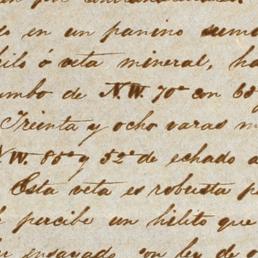 en un panino sumo
hilo ó veta mineral, ha
rumbo de N.W. 70° con 68
Treinta y ocho varas m
N.W. 85° y 52° de echado a
Esta veta es robusta p
percibe un hilito que
ensayado con ley de o